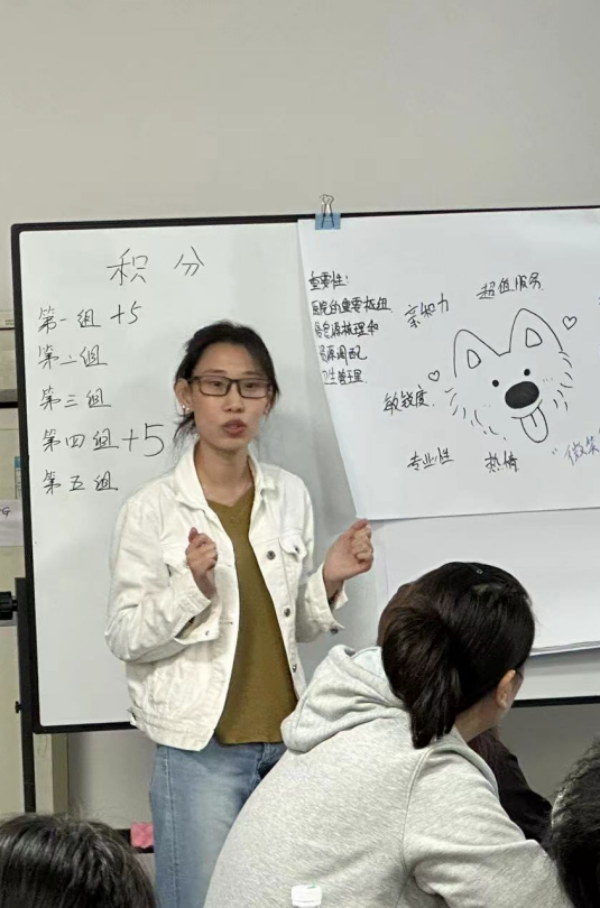 积分
第一组 +5
第二组
第三组
第四组 +5
第五组
重要性:
医院的重要枢纽
信息源梳理和
资源调配
卫生管理
亲和力
超值服务
敏锐度
专业性
热情
"微笑
G